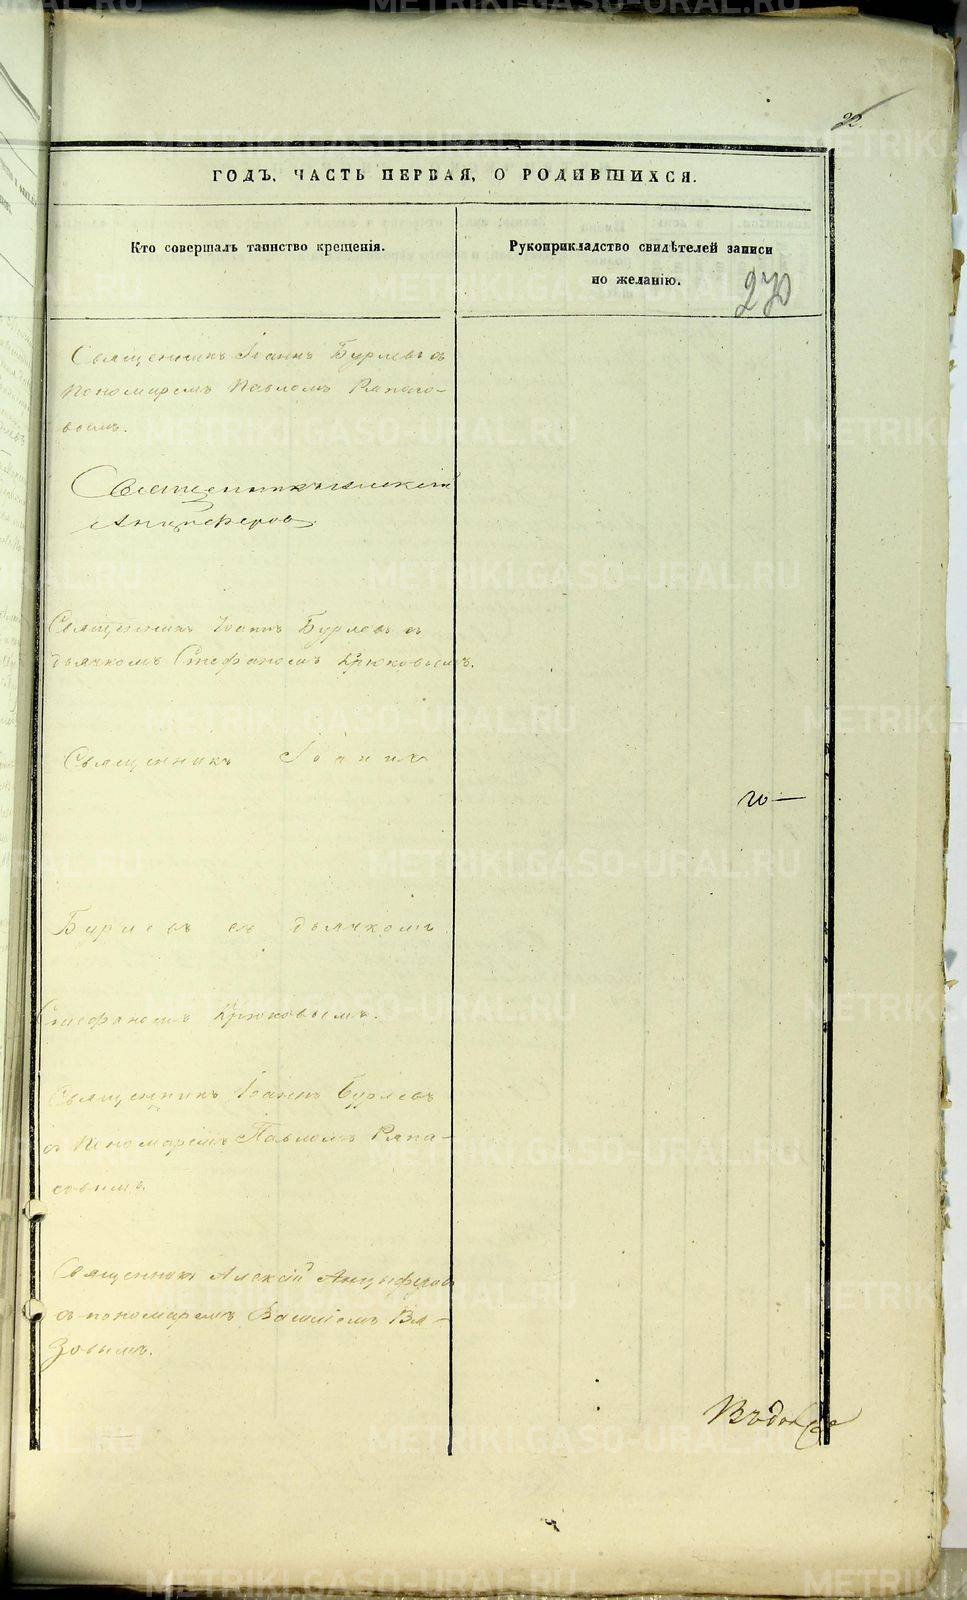 22.
ГОДЪ, ЧАСТЬ ПЕРВАЯ, О РОДИВШИХСЯ.
Кто совершалъ таинство крещенія.
Рукоприкладство свидѣтелей записи
по желанію.
270
Священникъ Іоаннъ Бурлевъ съ
Пономаремъ Павломъ
вымъ.
Священникъ Алексій
Анцыферовъ.
Священникъ Іоаннъ Бурлевъ съ
дьячкомъ Стефаномъ Крюковымъ.
Священникъ Іоаннъ
Бурлевъ съ дьячкомъ
Стефаномъ Крюковымъ.
Священникъ Іоаннъ Бурлевъ
съ Пономаремъ Павломъ
совымъ.
Священникъ Алексій Анцыферовъ
съ пономаремъ Василіемъ Вя-
зовымъ.
METRIKI.GASO-URAL.RU